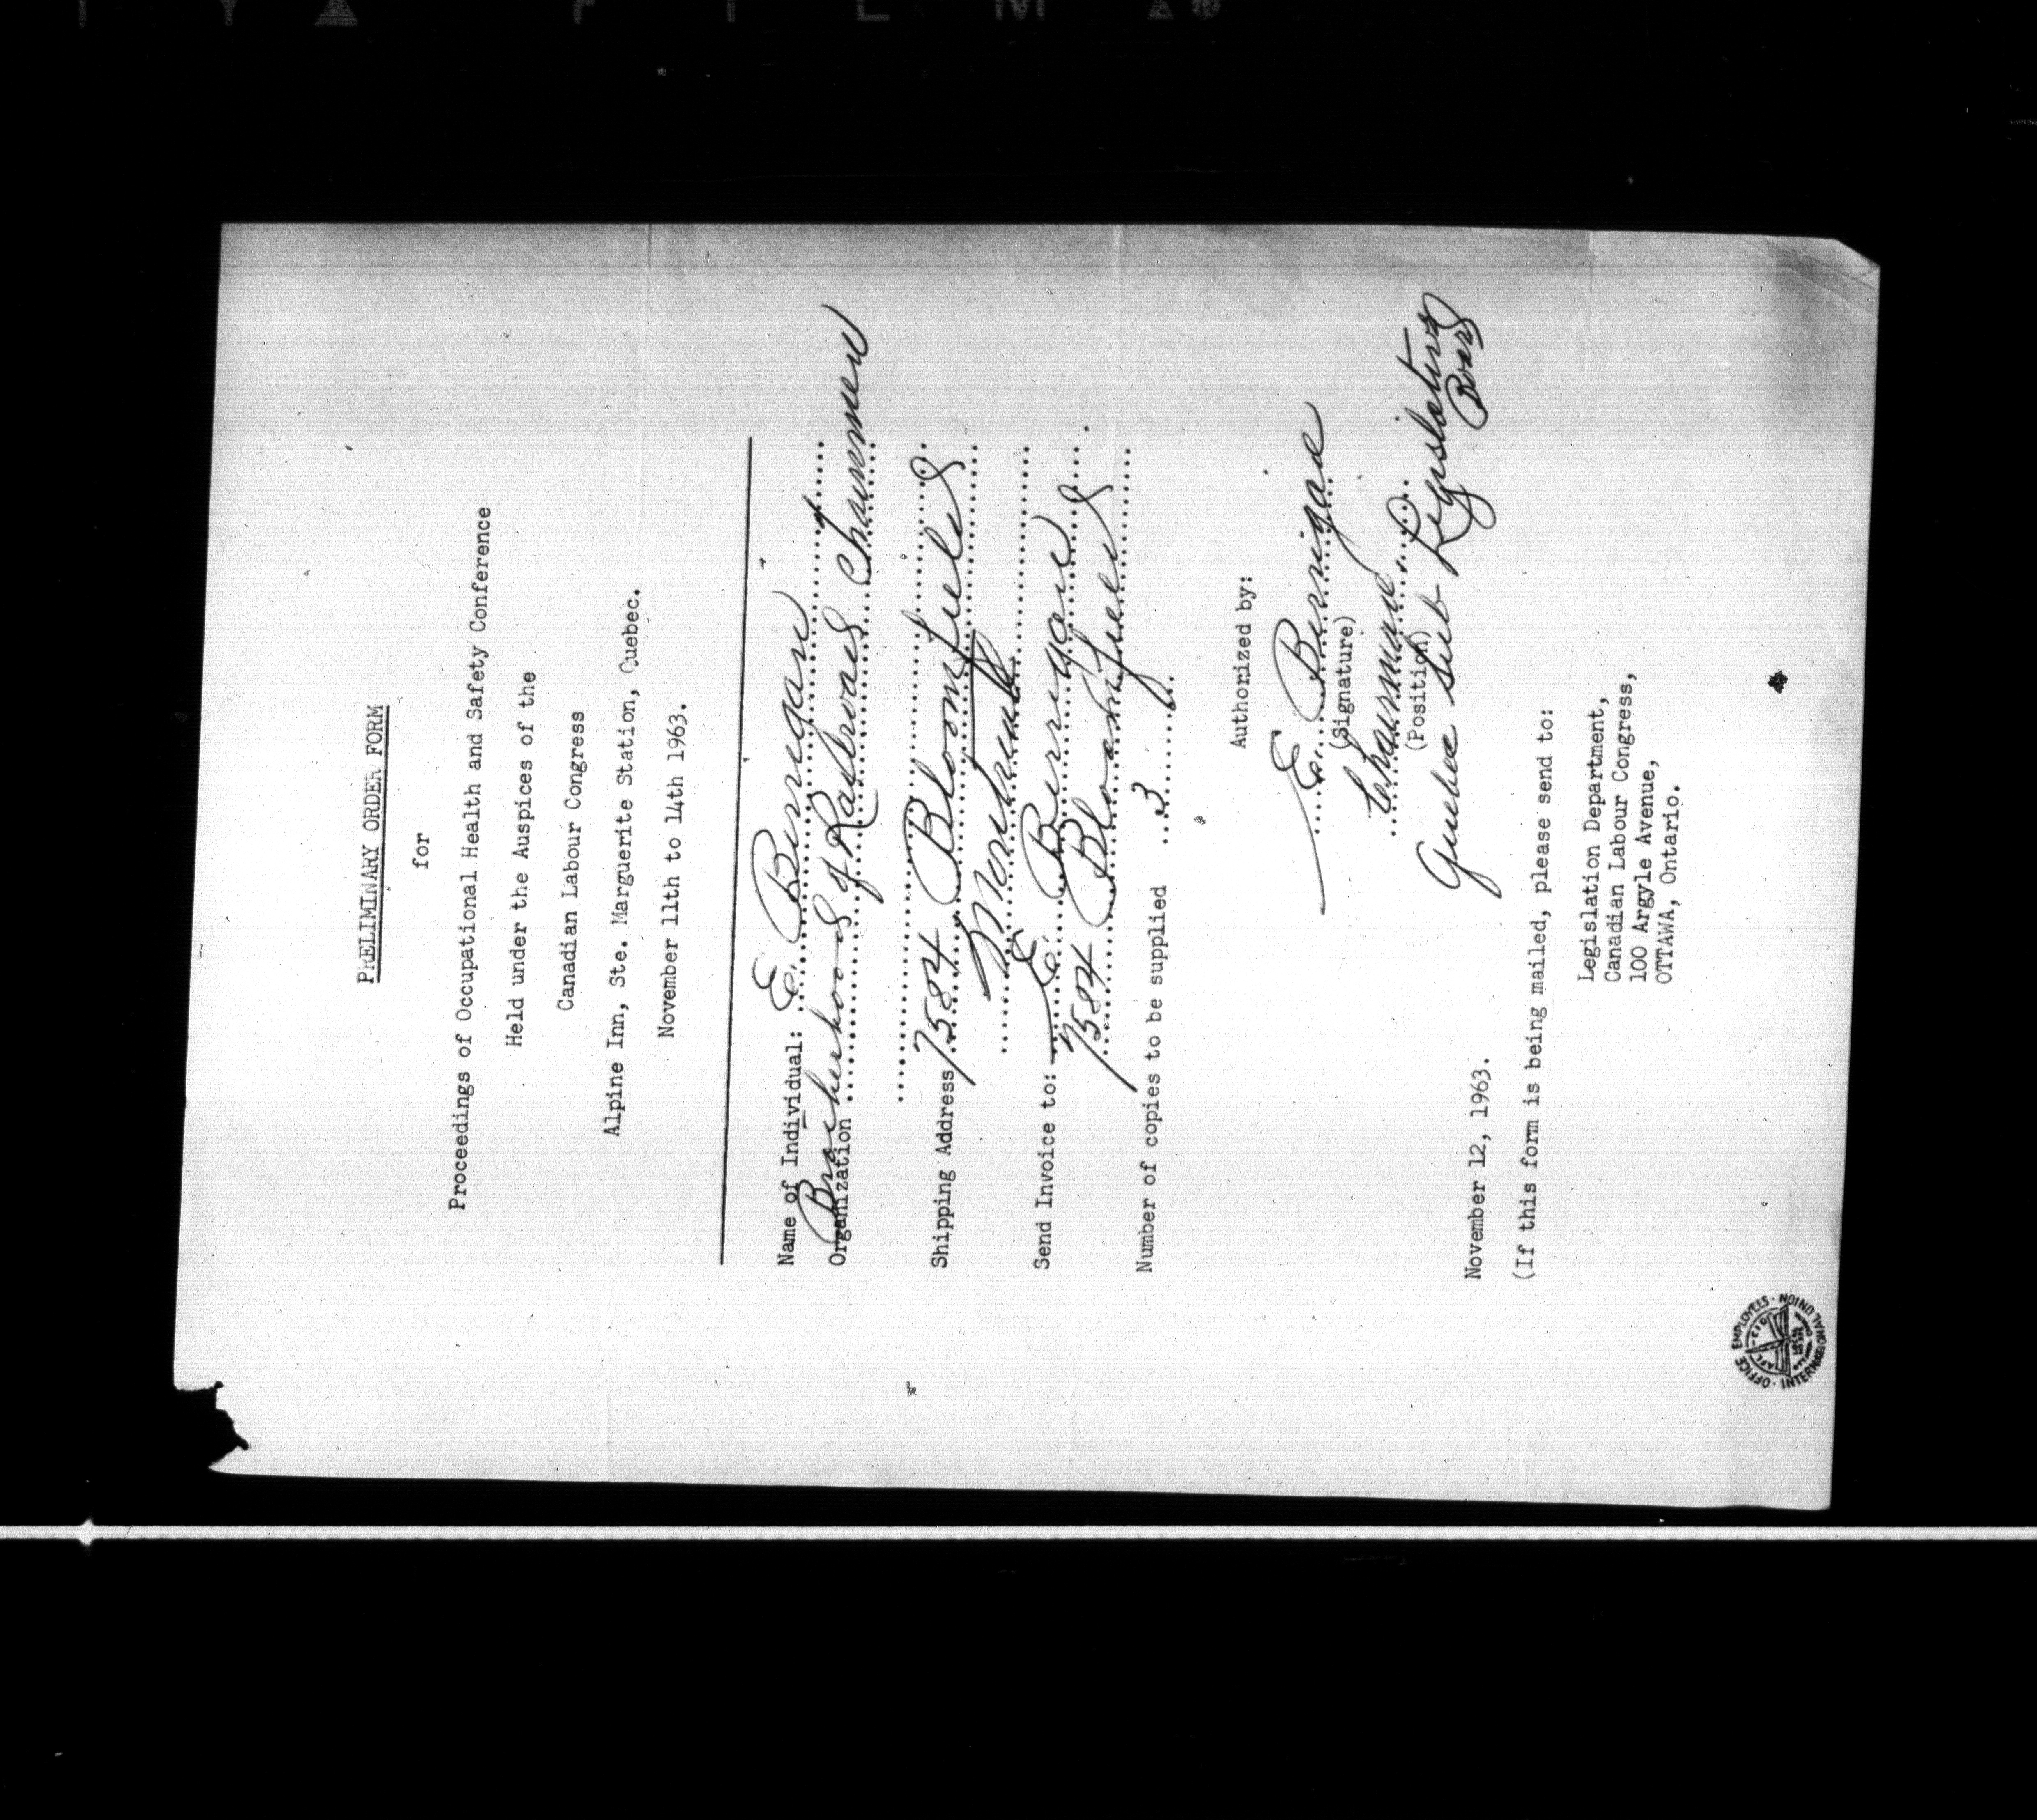 PRELIMINARY ORDER FORM
for
Proceedings of Occupational Health and Safety Conference
Held under the Auspices of the
Canadian Labour Congress
Alpine Inn, Ste. Marguerite Station, Quebec.
November 11th to 14th 1963.
Name of Individual: E. Berrigan
Organization Brotherhood of Railroad Trainmen
Shipping Address 7584 Bloomfield
Montreal
Send Invoice to: E. Berrigan
7584 Bloomfield
Number of copies to be supplied 3
Authorized by:
E. Berrigan
(Signature)
Chairman
(Position)
Quebec Sub Legislative
Board
November 12, 1963.
(If this form is being mailed, please send to:
Legislation Department,
Canadian Labour Congress,
100 Argyle Avenue,
OTTAWA, Ontario.
OFFICE EMPLOYEES · INTERNATIONAL UNION ·
AFL-CIO
LOCAL